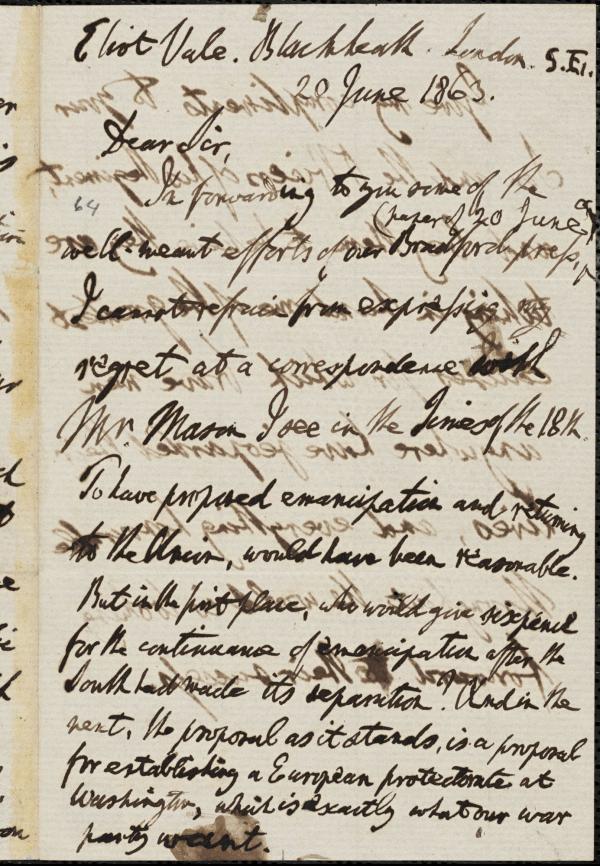 Eliot Vale. Blackheath. London. S.E.
20 June 1863.
Dear Sir,
In forwarding to you some of the
64
(paper of 20 June)
well-meant efforts of our Bradford press,
I cannot refrain from expressing my
regret at a correspondence with
Mr. Mason I see in the Times of the 18th.
To have proposed emancipation and returning
to the Union, would have been reasonable.
But in the first place, who would give sixpence
for the continuance of emancipation after the
South had made its separation? And in the
next, the proposal as it stands, is a proposal
for establishing a European protectorate at
Washington, which is exactly what our war
party want.